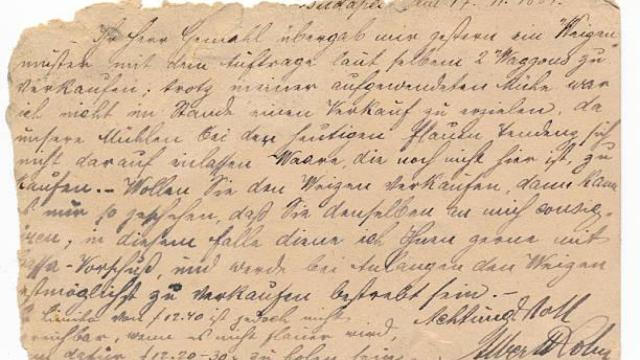 Budapest, am 17. 11.
Ihr Herr Gemahl übergab mir gestern ein Weizen
muster mit dem Auftrage laut selbem 2 Waggons zu
verkaufen; trotz meiner aufgewendeten Mühe war
ich nicht im Stande einen Verkauf zu erzielen, da
unsere Mühlen bei der heutigen flauen Tendenz sich
nicht darauf einlassen Waare, die noch nicht hier ist, zu
kaufen. – Wollen Sie den Weizen verkaufen, dann kann
es nur so geschehen, daß Sie denselben an mich consig-
niren; in diesem Falle diene ich Ihnen gerne mit
Cassa-Vorschuß, und werde bei Anlangen den Weizen
bestmöglichst zu verkaufen bestrebt sein. –
Limite von f 12.40 ist jedoch nicht Achtungsvoll
erreichbar, wenn es nicht flauer wird,
dafür f 12.20-30 zu holen sein.